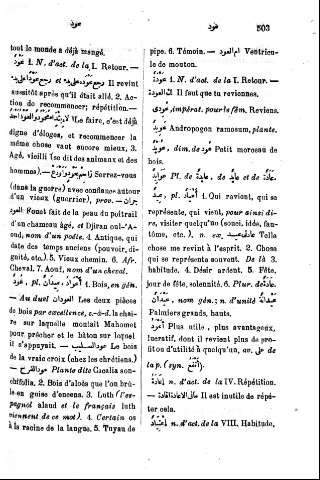 عود
عود
503
tout le monde a déjà mangé.
عَوْد 1. N. d'act. de la I. Retour. —
رجع عوده على بدئه et رجع عودا على بدء Il revint
aussitôt après qu'il était allé. 2. Ac-
tion de recommencer; répétition. —
Le faire, c'est déjà
digne d'éloges, et recommencer la
même chose vaut encore mieux. 3.
Agé, vieilli (se dit des animaux et des
hommes). — Servez-vous
(dans la guerre) avec confiance autour
d'un vieux (guerrier), prov. — جران
العود Fouet fait de la peau du poitrail
d'un chameau âgé, et Djiran oul-'A-
oud, nom d'un poëte. 4. Antique, qui
date des temps anciens (pouvoir, di-
gnité, etc.). 5. Vieux chemin. 6. Afr.
Cheval. 7. Aouf, nom d'un cheval.
عُود, pl. عِيدَان, أَعْوَاد 1. Bois, en gén.
— Au duel العودان Les deux pièces
de bois par excellence, c.-à-d. la chai-
re sur laquelle montait Mahomet
pour prêcher et le bâton sur lequel
il s'appuyait. — عود الصليب Le bois
de la vraie croix (chez les chrétiens.)
— عود القرح Plante dite Cacalia son-
chifolia. 2. Bois d'aloès que l'on brû-
le en guise d'encens. 3. Luth (l'es-
pagnol alaud et le français luth
viennent de ce mot). 4. Certain os
à la racine de la langue. 5. Tuyau de
pipe. 6. Témoin. — ام العود Ventricu-
le de mouton.
عَوْدَة 1. N. d'act. de la I. Retour. —
لك العودة Il faut que tu reviennes.
عُودِي, impérat. pour le fém. Reviens.
Andropogon ramosum, plante.
عُوَيْد, dim. de عود Petit morceau de
bois.
عَوَائِد Pl. de عَايِدَة, de عِيَادَة et de عَادَة.
عِيد, pl. أَعْيَاد 1. Qui revient, qui se
représente, qui vient, pour ainsi di-
re, visiter quelqu'un (souci, idée, fan-
tôme, etc.), n. ex. Telle
chose me revint à l'esprit. 2. Chose
qui se représente souvent. De là 3.
habitude. 4. Désir ardent. 5. Fête,
jour de fête, solennité. 6. Plur. de عادة.
عِيدَان, nom gén.; n. d'unité عِيدَانَة
Palmiers grands, hauts.
أَعْوَد Plus utile, plus avantageux,
lucratif, dont il revient plus de pro-
fit ou d'utilité à quelqu'un, av. على de
la p. (syn. أَنْفَع).
إِعَادَة n. d'act. de la IV. Répétition.
— Il est inutile de répé-
ter cela.
اعْتِيَاد n. d'act. de la VIII. Habitude,